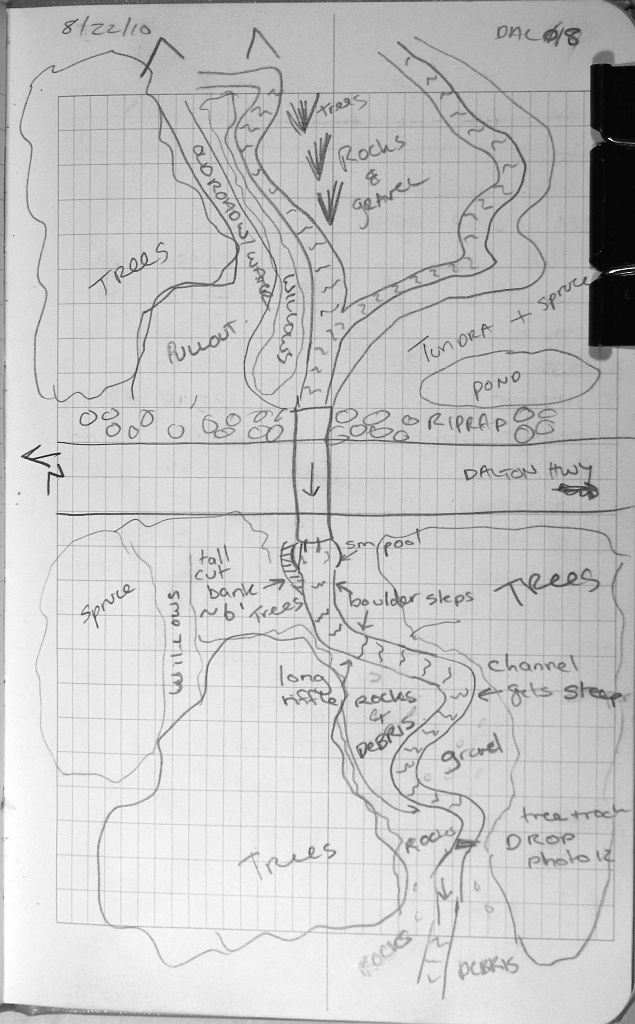 8/22/10
DAL 618
Trees
Rocks
&
gravel
OLD ROAD W/ WATER
WILLOWS
TREES
PULLOUT
TUNDRA + SPRUCE
POND
RIPRAP
DALTON HWY
N
sm pool
tall
cut
bank
~6'
TREES
TREES
Spruce
WILLOWS
boulder steps
long
riffle
channel
gets steeper
ROCKS
&
DEBRIS
gravel
ROCKS
DROP
photo 12
TREES
ROCKS
DEBRIS